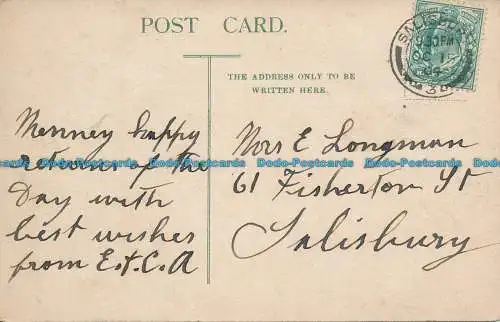 POST CARD.
THE ADDRESS ONLY TO BE
WRITTEN HERE.
Menney happy
returns of the
Day with
best wishes
from E.t.C.A
Mrs E Longman
61 Fisherton St
Salisbury
SALISBURY
9.30PM
Dodo-Postcards Dodo-Postcards Dodo-Postcards Dodo-Postcards Dodo-Postcards